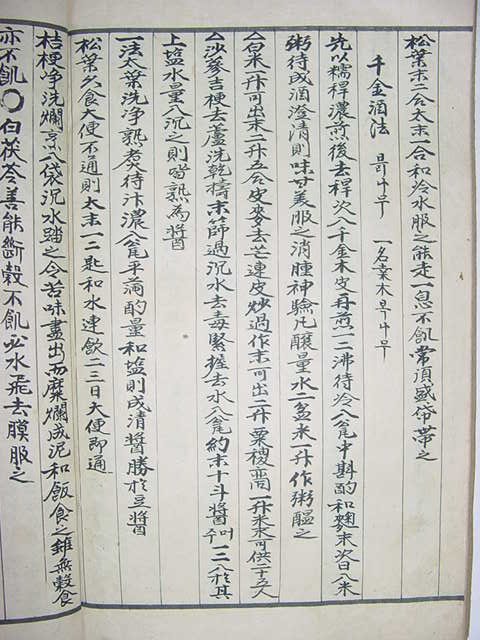 松葉末二合太末一合和冷水服之能走一息不飢常須盛帒帶之
千金酒法 븍나무 一名業木북나무
先以糯稈濃煎後去稈次入千金木皮再煎一二沸待冷入瓮中斟酌和麴末次日入米
粥待成酒澄清則味甘美服之消腫神驗凡釀量水二盆米一升作粥醞之
白米一升可出末一升五合皮麥去芒連皮炒過作末可出二升粟稷亦同一升米末可供二十五人
沙參吉梗去蘆洗乾擣末篩過沉水去毒緊握去水入瓮約末十斗醬주머一二入於其
上塩水量入沉之則熟為醬
一法太葉洗淨熟煮待汁濃入瓮半滿酌量和塩則成清醬勝於豆醬
松葉久食大便不通則太末一二匙和水連飲二三日大便即通
桔梗净洗爛烹入袋沉水踏之令苦味盡出而糜爛成泥和飯食之雖無穀食
亦不飢○白茯苓善能斷穀不飢必水飛去膜服之